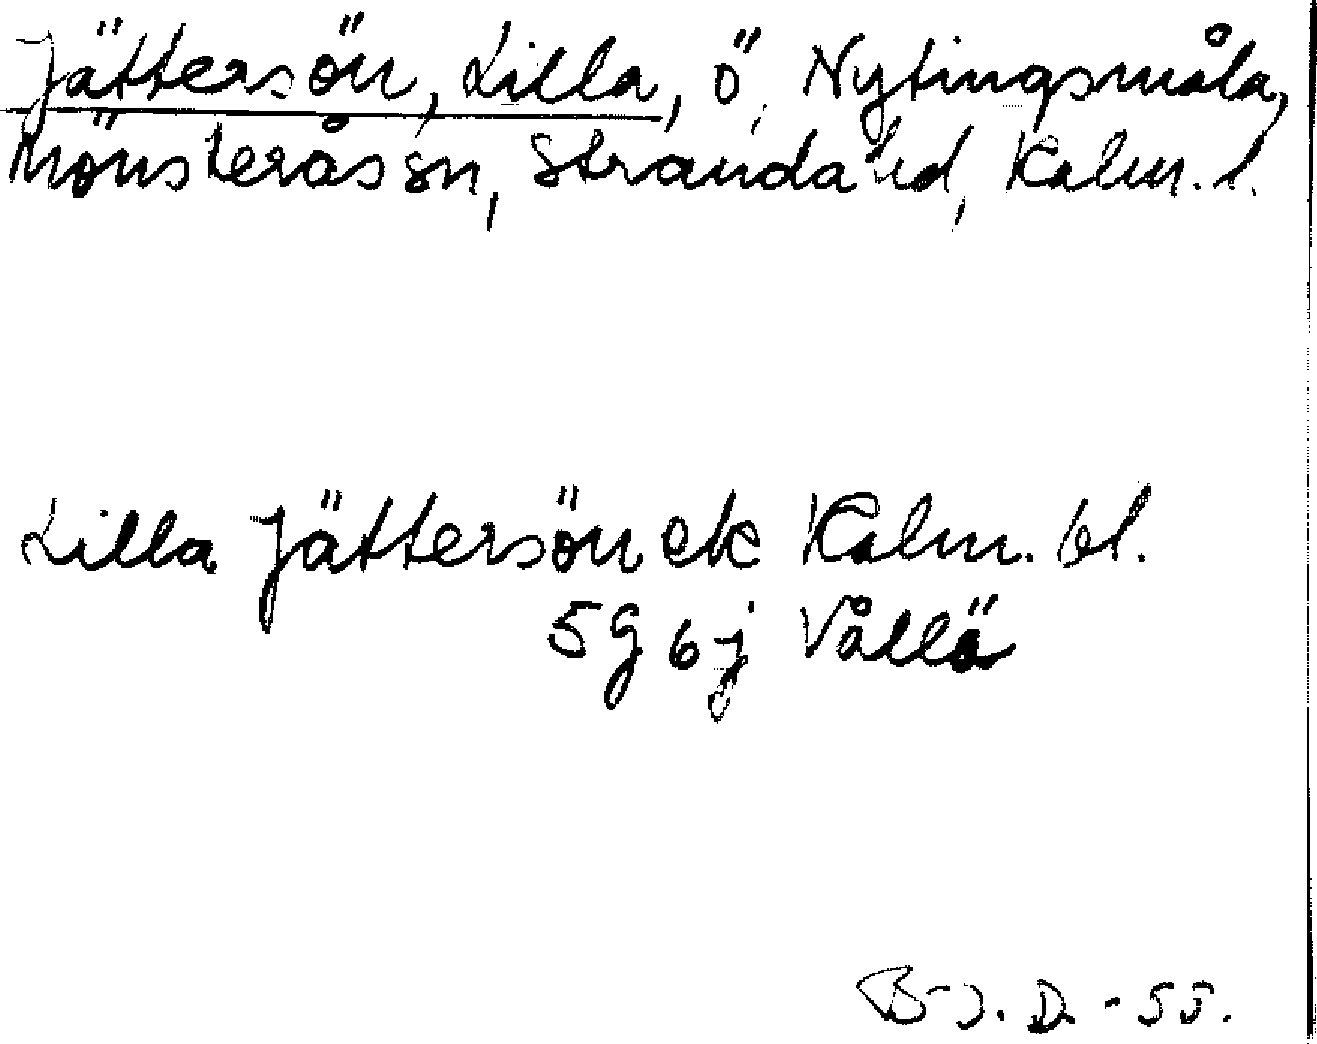 Jättersön, Lilla, ö, Nytingsmåla,
Mönsterås sn, Stranda hd, Kalm. l.
Lilla Jättersön ek Kalm. bl.
5G6j Vållö
B-J. D. -55.